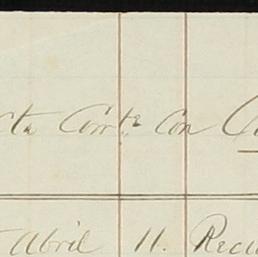 cta Corrte con
Abril 11. Reci